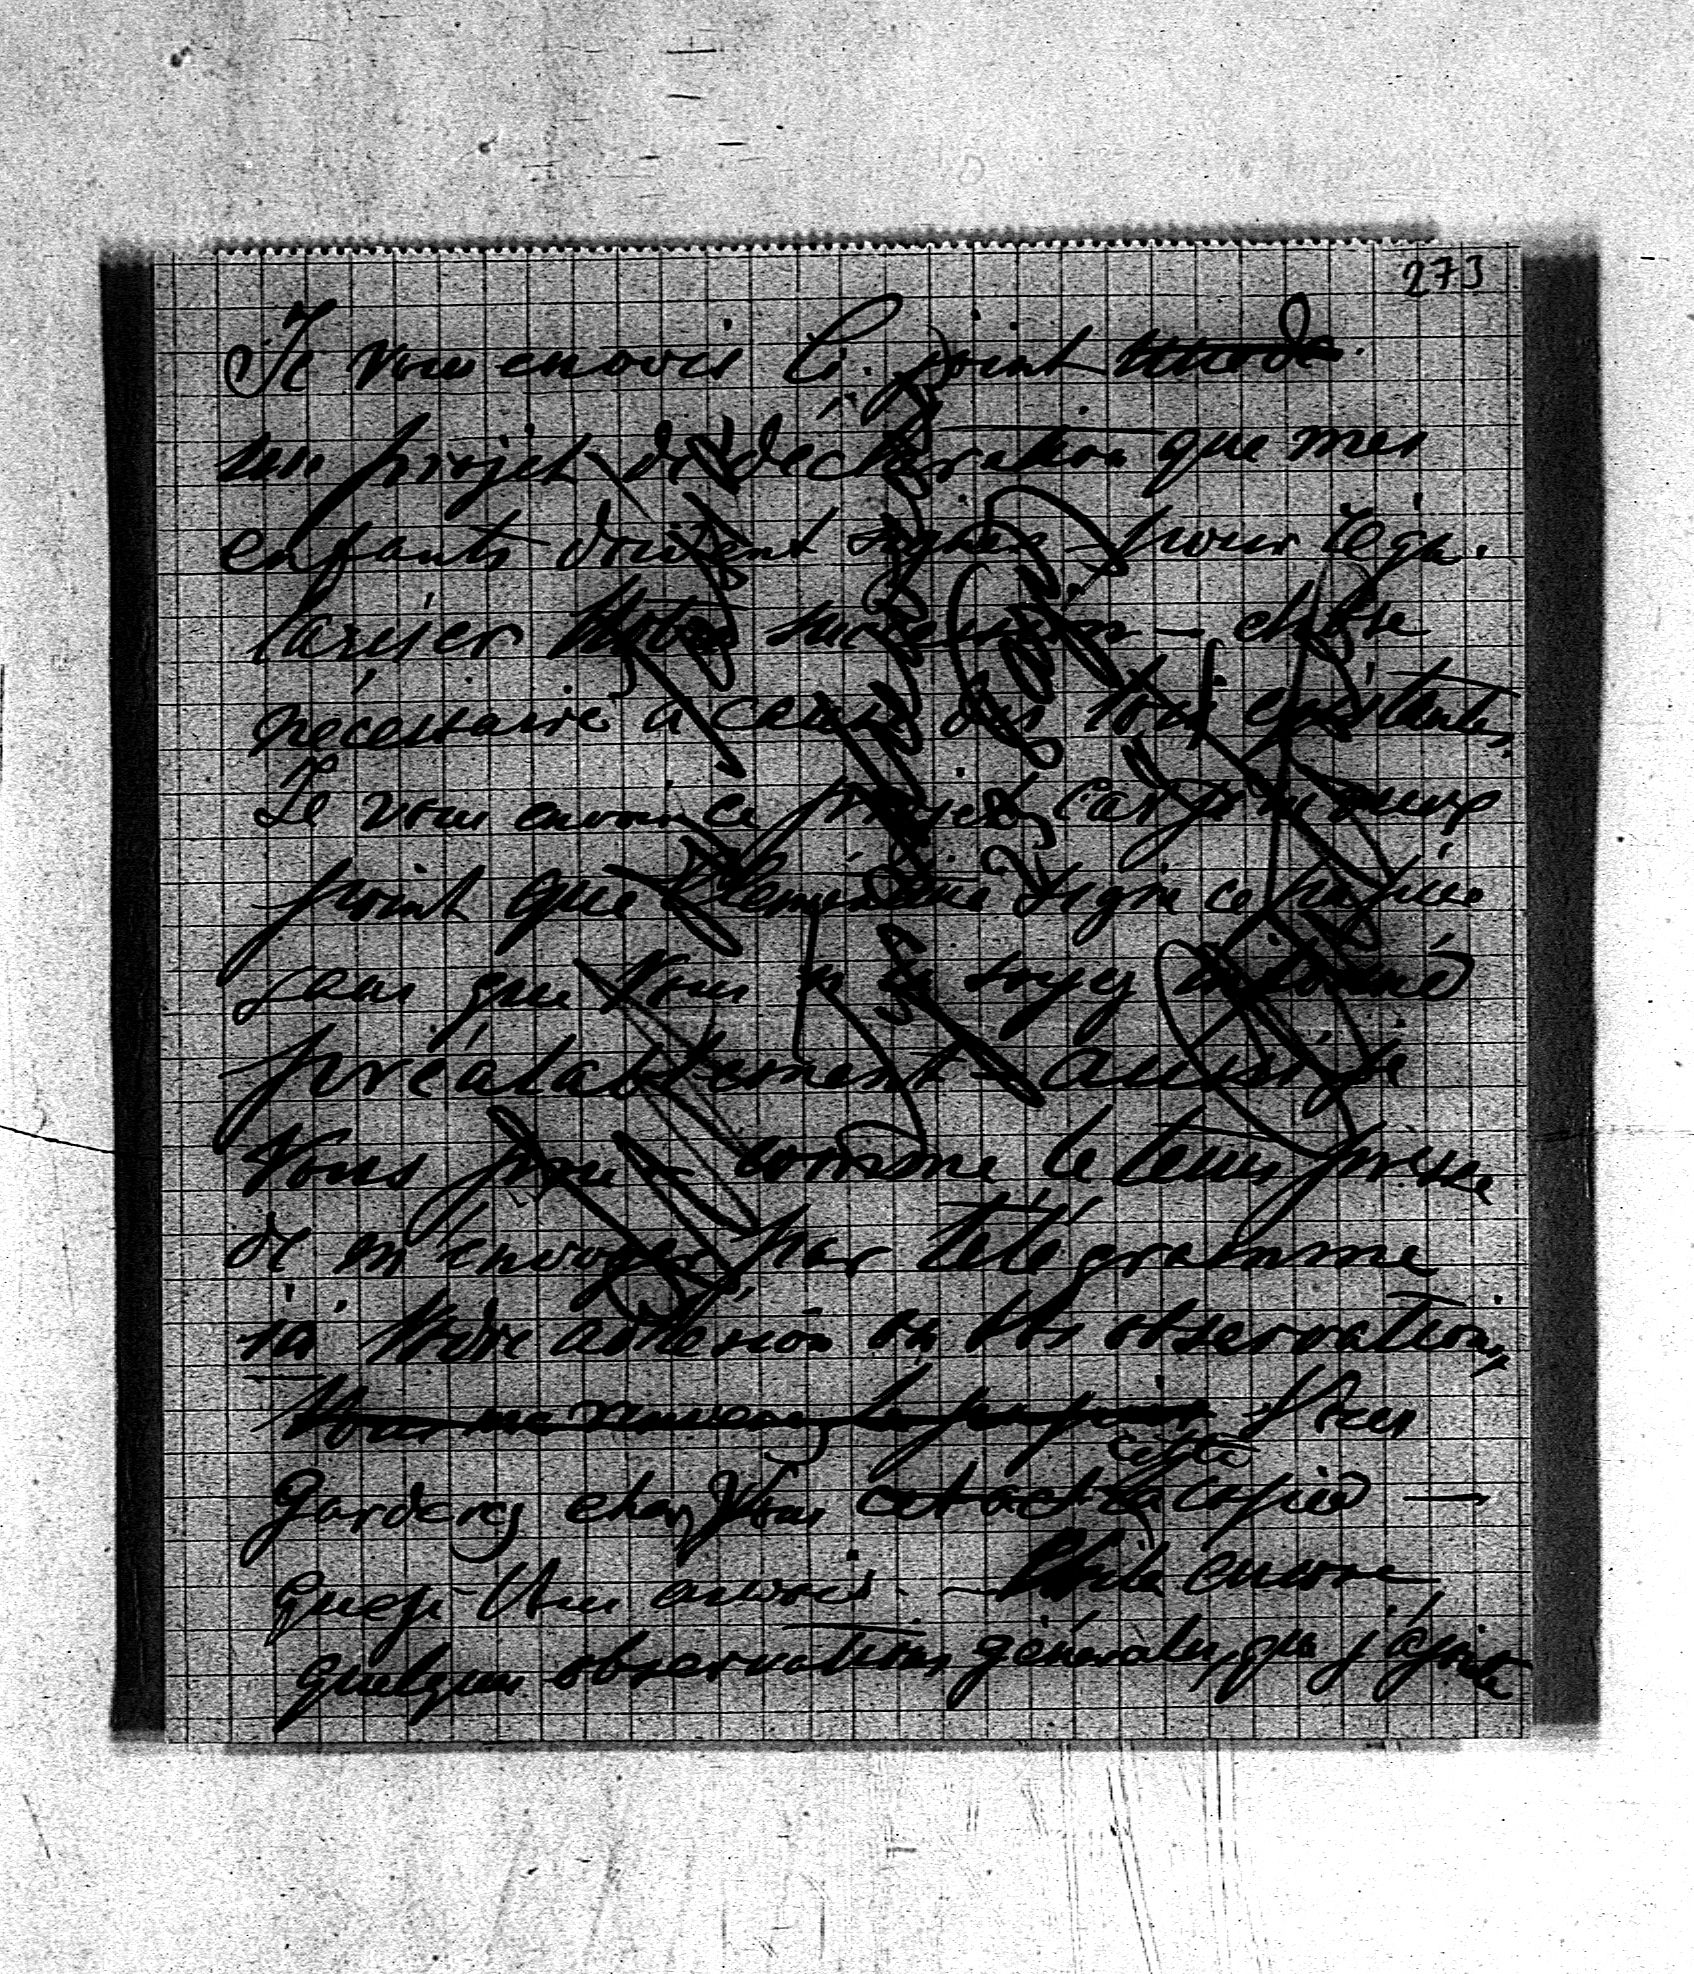 273
Je vous envois ci-joint
un projet de déclaration que mes
enfants doivent signer pour régu-
lariser notre succession — chose
nécessaire à cause des lois existantes.
Je vous envoie ce projet, car je ne veux
point que Clémentine signe ce papier
sans que Vous n'en soyez informé
préalablement — aussi je
Vous prie — comme le tems presse
de m'envoyer par télégramme
ici Votre adhésion ou Vos observations,
Vous me renverrez le papier Vous
Garderez chez Vous cet acte cette copie —
que je Vous envois. — Voilà encore
quelques observations générales, que j'ajoute